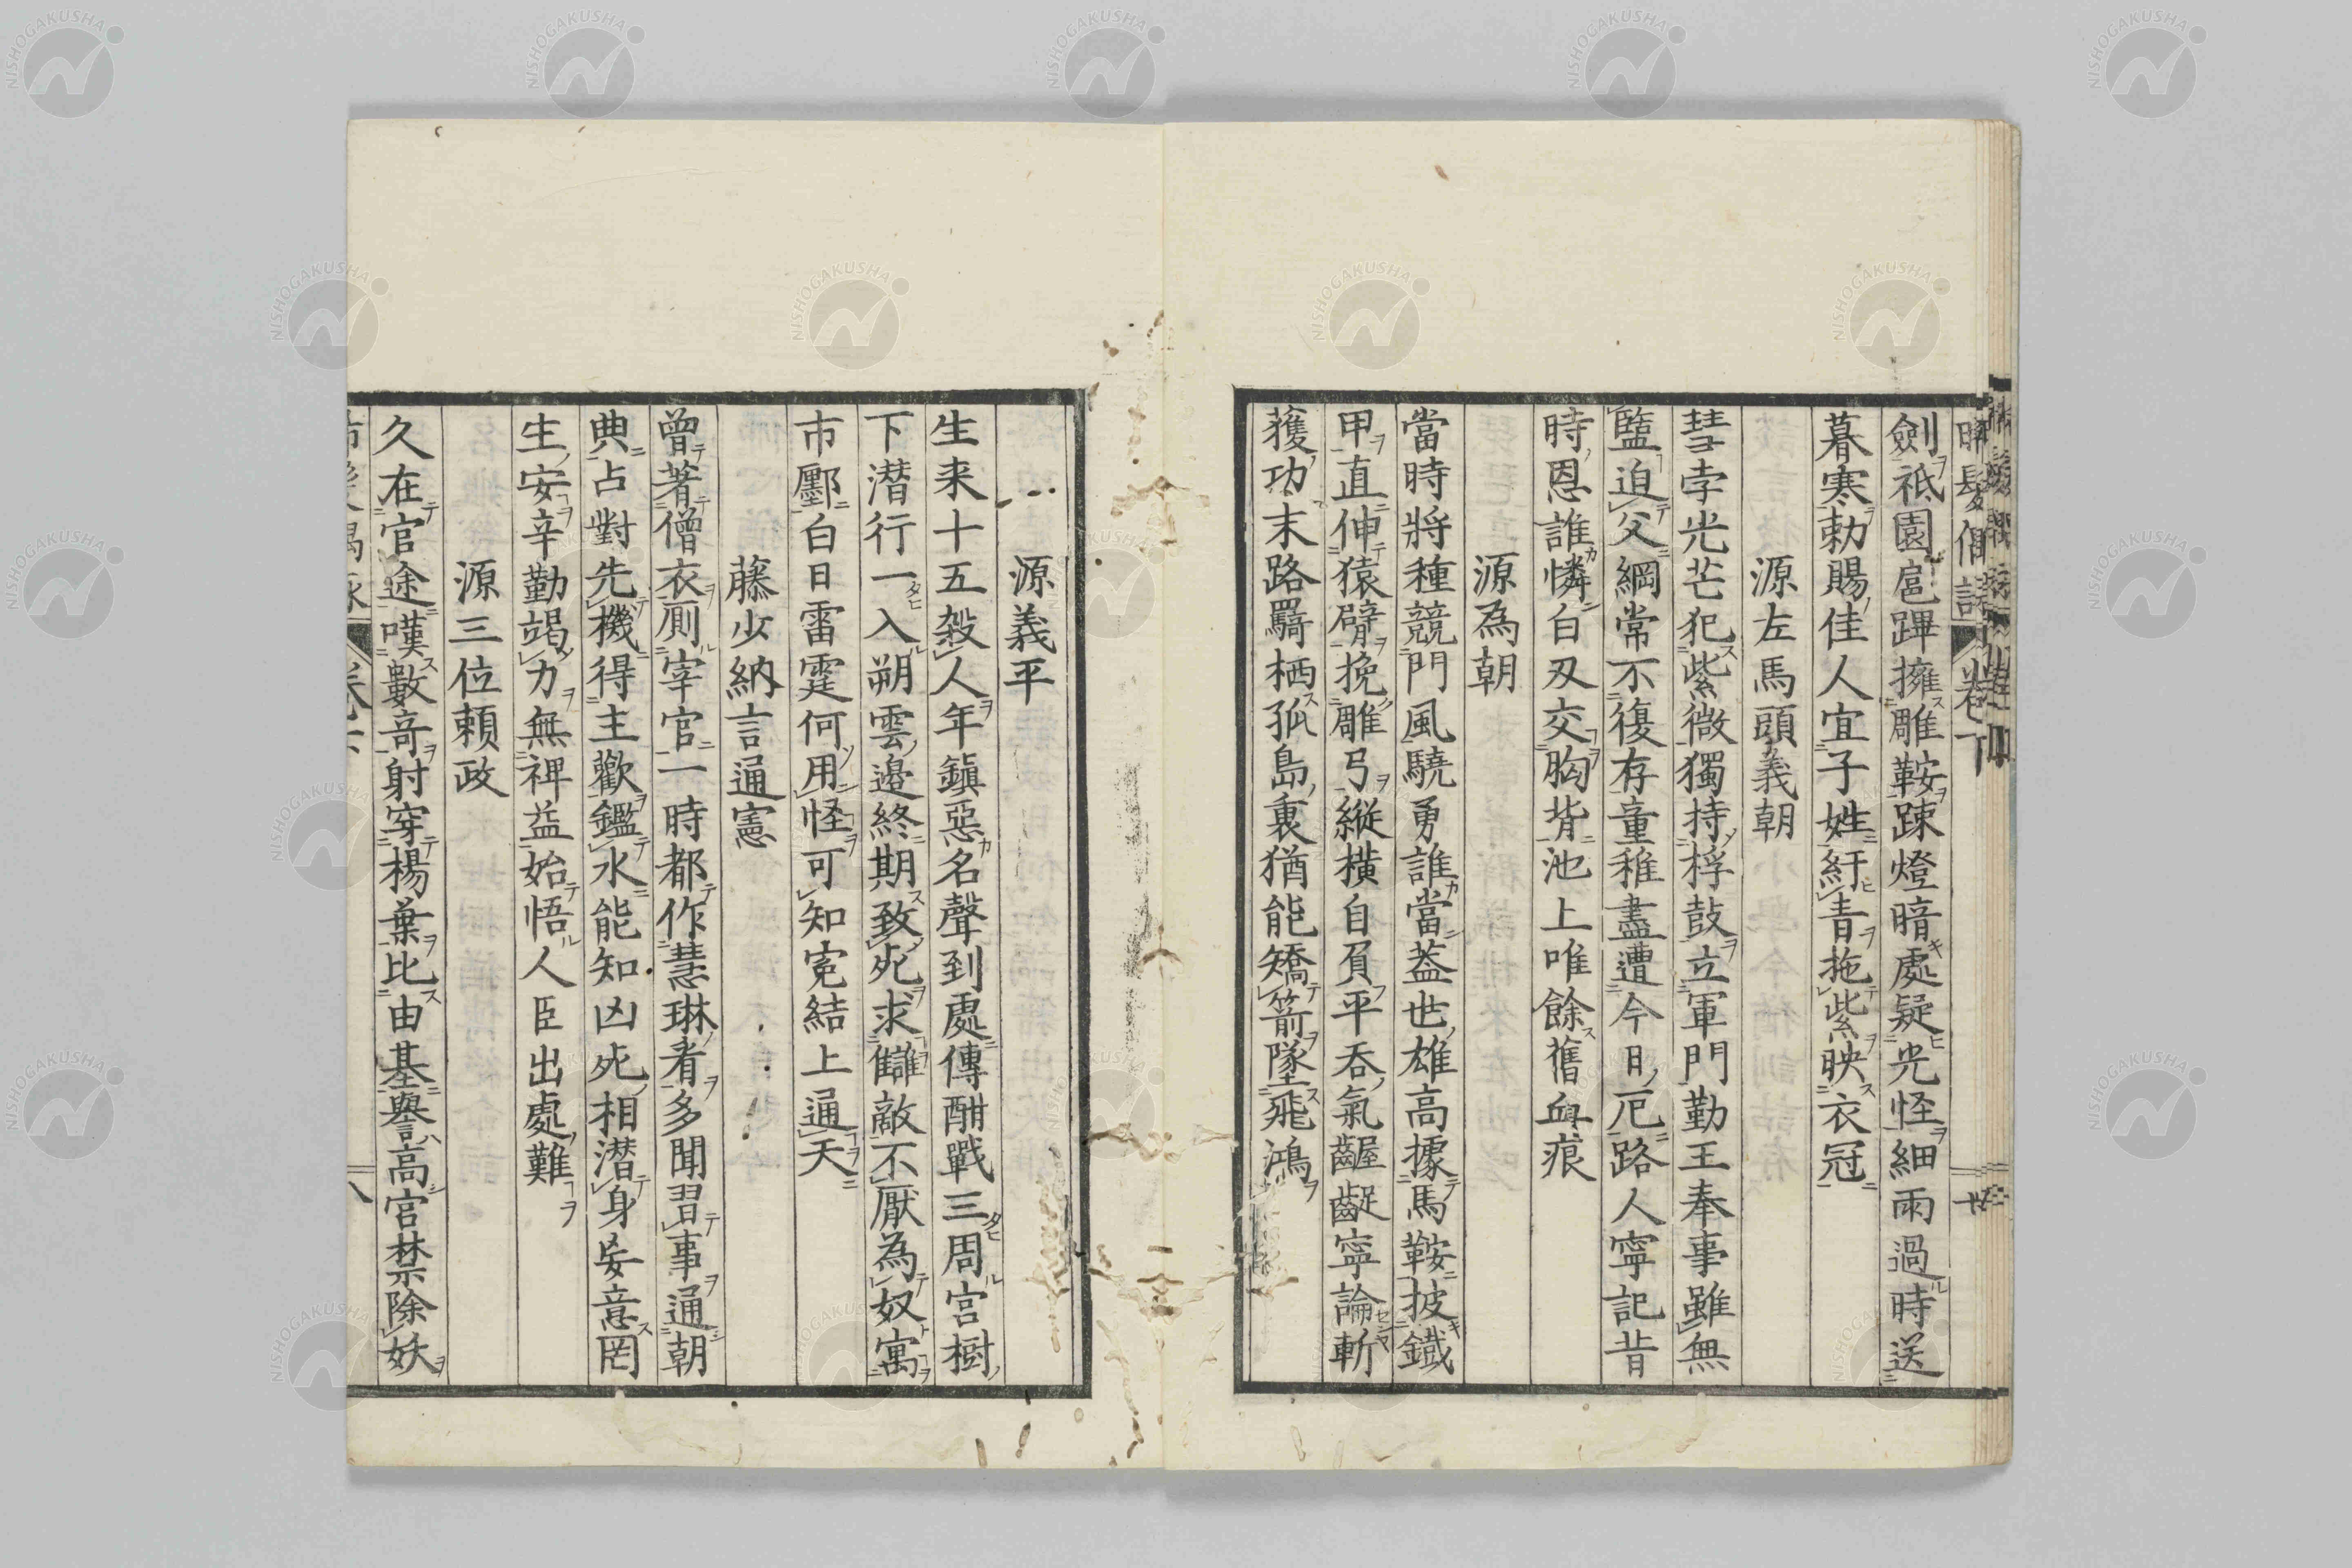 劍祗園扈蹕擁雕鞍踈燈暗處疑光怪細雨過時送
暮寒勅賜佳人宜子姓紆青拖紫映衣冠
源左馬頭義朝
彗孛光芒犯紫微獨持桴鼓立軍門勤王奉事雖無
盬迫父綱常不復存童稚盡遭今日厄路人寧記昔
時恩誰憐白刃交胸背池上唯餘舊血痕
源為朝
當時將種競門風驍勇誰當蓋世雄高據馬鞍披鐵
甲直伸猿臂挽雕弓縱橫自負平吞氣齷齪寧論斬
獲功末路羈栖孤島裏猶能矯箭墜飛鴻
源義平
生来十五殺人年鎮惡名聲到處傳酣戰三周宮樹
下潜行一入朔雲邊終期致死求讎敵不厭為奴寓
市鄽白日雷霆何用怪可知寃結上通天
藤少納言通憲
曾著僧衣厠宰官一時都作慧琳看多聞習事通朝
典占對先機得主歡鑑水能知凶死相潜身安意罔
生安辛勤竭力無裨益始悟人臣出處難
源三位頼政
久在官途嘆數奇射穿楊葉比由基譽高官禁除妖
NISHOGAKUSHA